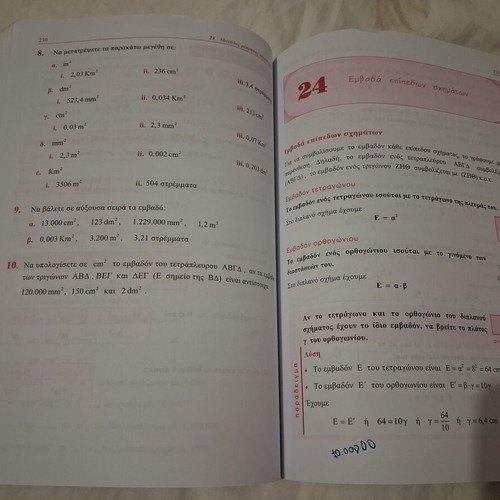 230
23
8. Να μετατρέψετε τα παρακάτω μεγέθη σε:
α. m²
i. 2,03 Km²
ii. 236 cm²
iii. 3,6 στρέμματα
β. dm²
i. 523,4 mm²
ii. 0,034 Km²
iii. 213 cm²
γ. cm²
i. 0,03 m²
ii. 2,3 mm²
iii. 0,07 Km²
δ. mm²
i. 2,3 m²
ii. 0,002 cm²
iii. 0,201 dm²
ε. Km²
i. 3506 m²
ii. 504 στρέμματα
9. Να βάλετε σε αύξουσα σειρά τα εμβαδά:
α. 13.000 cm², 123 dm², 1.229.000 mm², 1,2 m²
β. 0,003 Km², 3.200 m², 3,21 στρέμματα
10. Να υπολογίσετε σε cm² το εμβαδόν του τετράπλευρου ΑΒΓΔ, αν τα εμβαδά
των τριγώνων ΑΒΔ, ΒΕΓ και ΔΕΓ (Ε σημείο της ΒΔ) είναι αντίστοιχα
120.000 mm², 150 cm² και 2 dm².
24 Εμβαδά επίπεδων σχημάτων
Εμβαδά επίπεδων σχημάτων
Για να συμβολίσουμε το εμβαδόν κάθε επίπεδου σχήματος, το γράφουμε σε
παρένθεση. Δηλαδή, το εμβαδόν ενός τετραπλεύρου ΑΒΓΔ συμβολίζ
(ΑΒΓΔ), το εμβαδόν ενός τριγώνου ΖΗΘ συμβολίζεται με (ΖΗΘ) κ.ο.κ.
Εμβαδόν τετραγώνου
Το εμβαδόν ενός τετραγώνου ισούται με το τετράγωνο της πλευράς του.
Στο διπλανό σχήμα έχουμε
Ε = α²
Εμβαδόν ορθογωνίου
Το εμβαδόν ενός ορθογωνίου ισούται με το γινόμενο των
διαστάσεών του.
Στο διπλανό σχήμα έχουμε
Ε = α·β
Αν το τετράγωνο και το ορθογώνιο του διπλανού
σχήματος έχουν το ίδιο εμβαδόν, να βρείτε το πλάτος
γ του ορθογωνίου.
παράδειγμα
Λύση
• Το εμβαδόν Ε του τετραγώνου είναι Ε = α² = 8² = 64 cm
• Το εμβαδόν Ε΄ του ορθογωνίου είναι Ε΄ = β·γ = 10γ
Έχουμε
Ε = Ε΄ ή 64 = 10γ ή γ = 64/10 ή γ = 6,4 cm